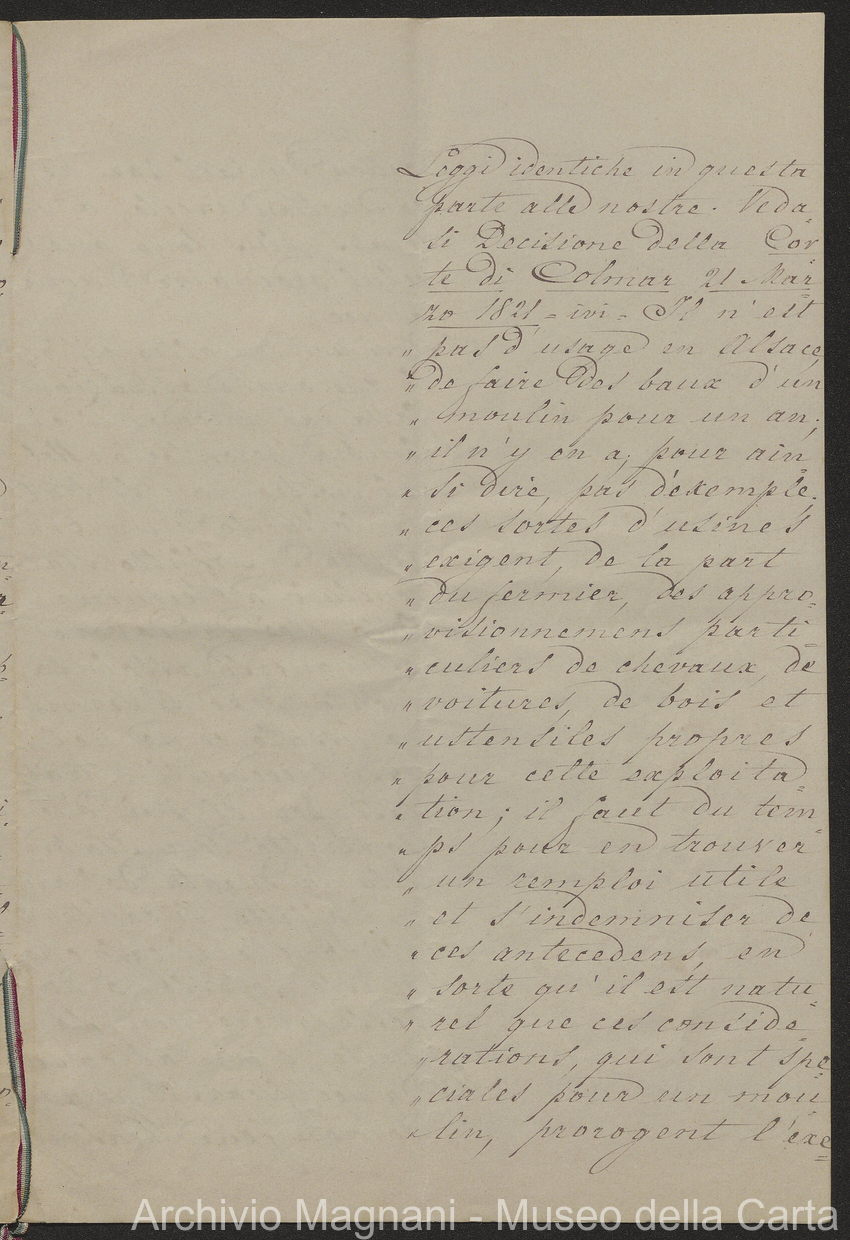 Leggi identiche in questa
parte alle nostre. Veda
si Decisione della Cor
te di Colmar 21 Mar
zo 1821 = ivi = Il n'est
" pas d'usage en Alsace,
" de faire des baux d'un
" moulin pour un an;
" il n'y en a, pour ain
" si dire, pas d'exemple.
" ces sortes d'usines
" exigent, de la part
" du fermier, des appro=
" visionnemens parti=
" culiers de chevaux, de
" voitures, de bois et
" ustensiles propres
" pour cette exploita=
" tion; il faut du tem=
" ps pour en trouver
" un remploi utile
" et s'indemniser de
" ces antecedens, en
" sorte qu'il est natu=
" rel que ces conside=
" rations, qui sont spe=
" ciales pour un mou=
" lin, prorogent l'exe=
Archivio Magnani - Museo della Carta